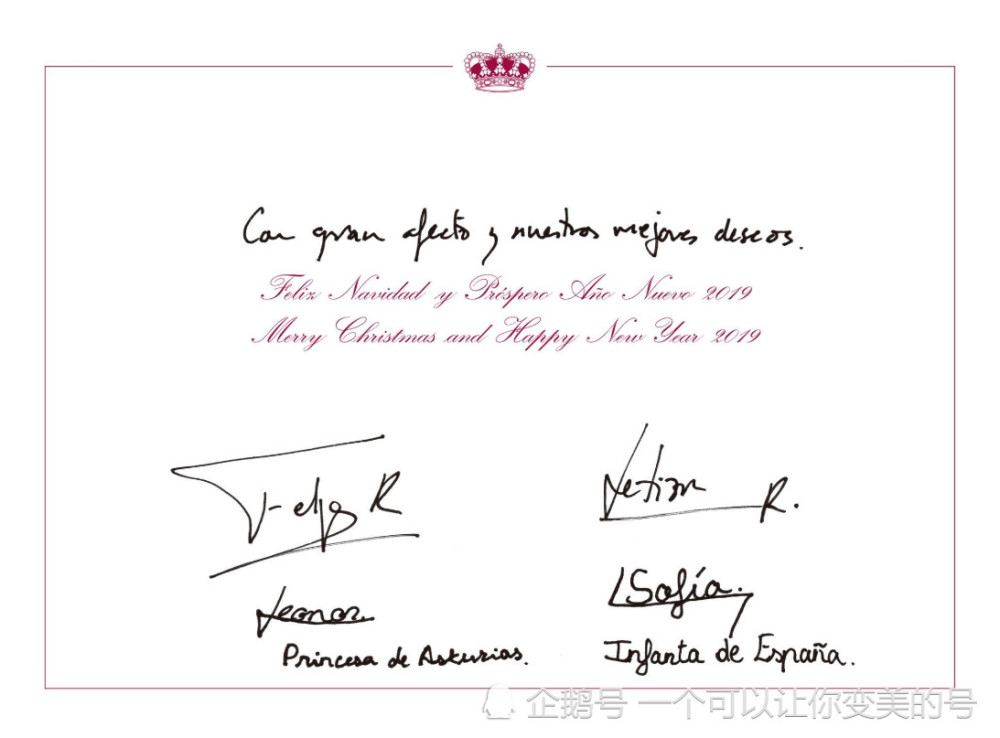 Con gran afecto y nuestros mejores deseos.
Feliz Navidad y Próspero Año Nuevo 2019
Merry Christmas and Happy New Year 2019
Felipe R
Letizia R.
Leonor.
Princesa de Asturias.
Sofía.
Infanta de España.
企鹅号 一个可以让你变美的号